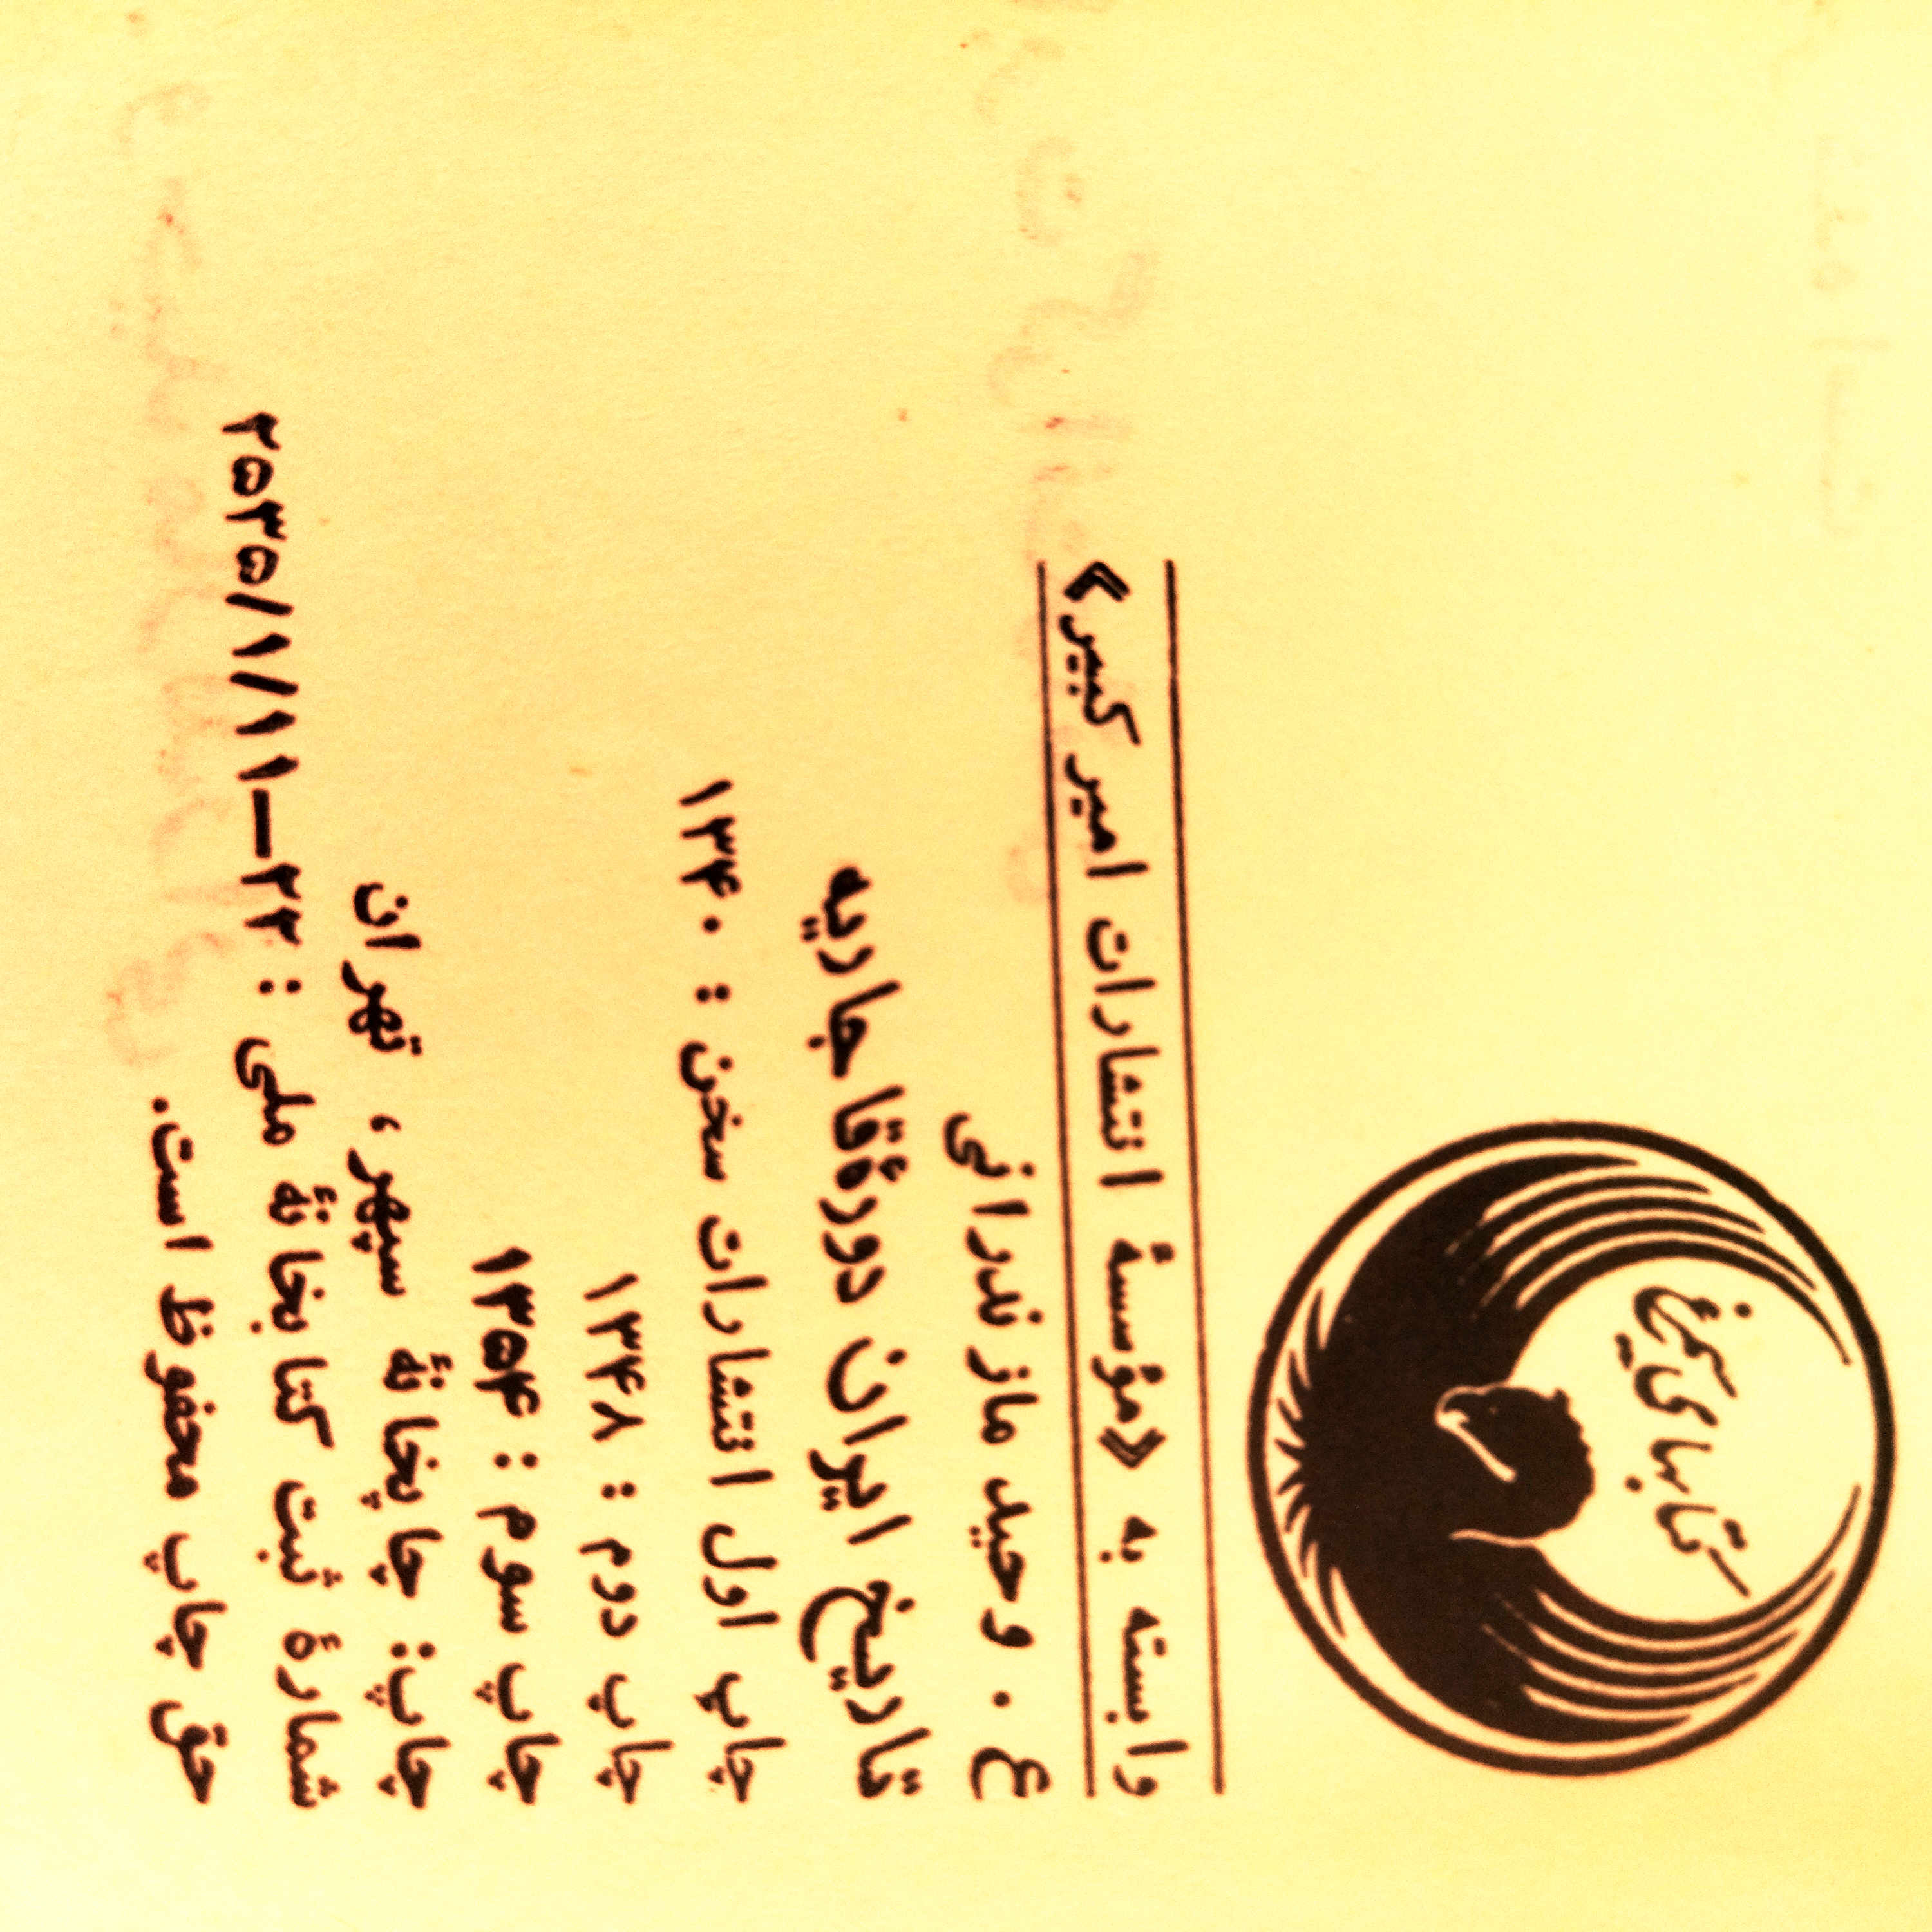 کتابهای سیمرغ
وابسته به «مؤسسهٔ انتشارات امیر کبیر»
ع . وحید مازندرانی
تاریخ ایران دورهٔقاجاریه
چاپ اول انتشارات سخن : ۱۳۴۰
چاپ دوم : ۱۳۴۸
چاپ سوم : ۱۳۵۴
چاپ: چاپخانهٔ سپهر، تهران
شمارهٔ ثبت کتابخانهٔ ملی : ۲۲—۲۵۳۵/۱/۱۱
حق چاپ محفوظ است.